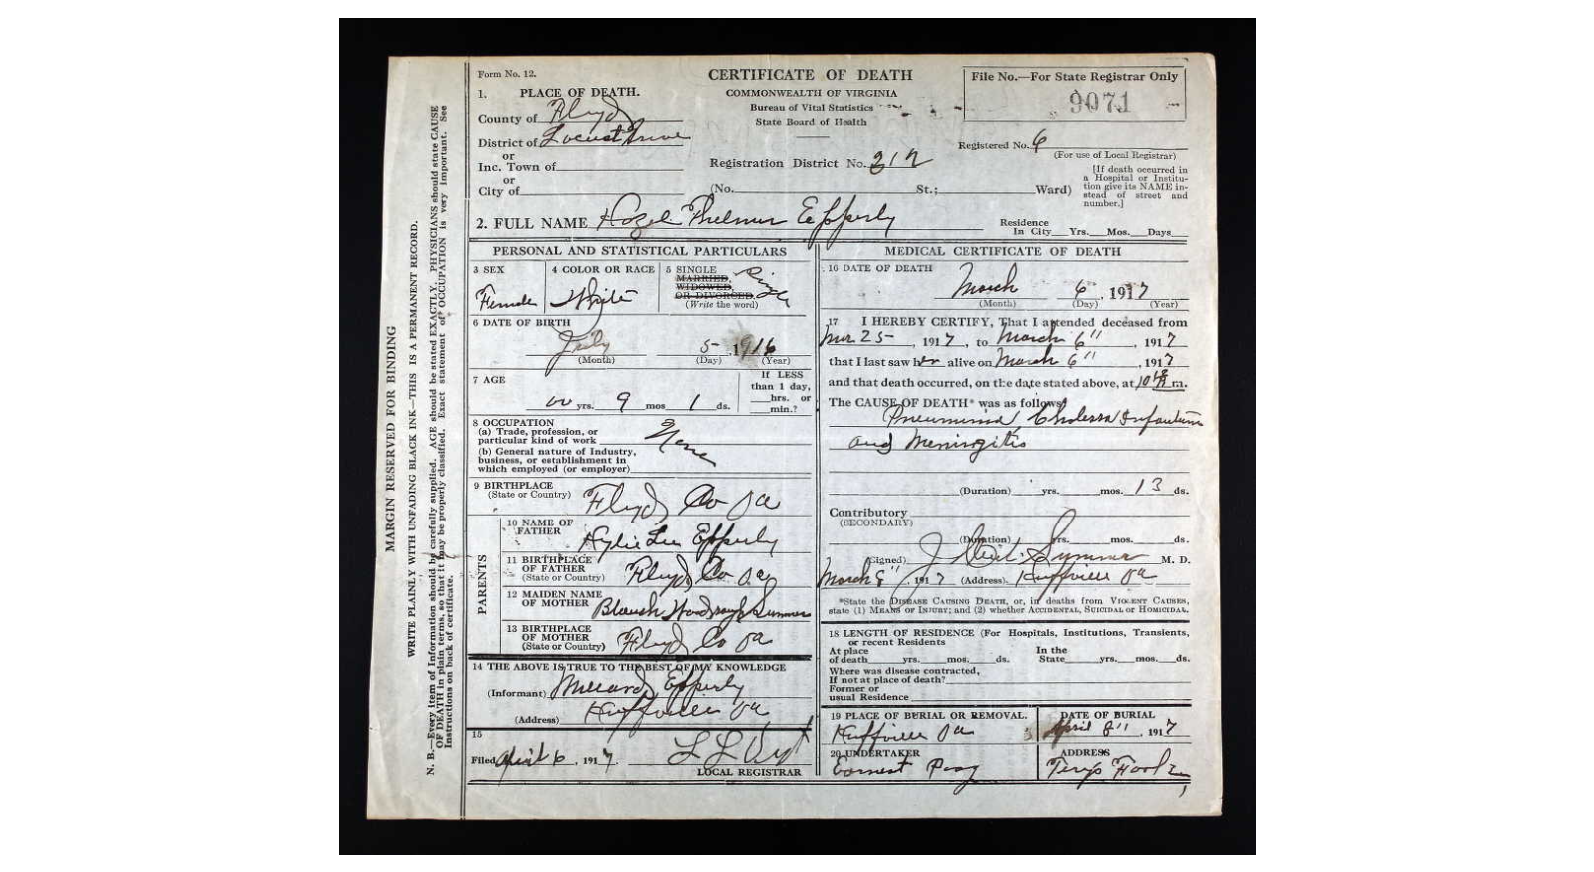 Form No. 12.
CERTIFICATE OF DEATH
COMMONWEALTH OF VIRGINIA
Bureau of Vital Statistics
State Board of Health
File No.—For State Registrar Only
9071
1. PLACE OF DEATH.
County of Floyd
District of Locust Grove
or
Inc. Town of
or
City of
Registration District No. 312
(No. St.; Ward)
Registered No. 6
(For use of Local Registrar)
[If death occurred in
a Hospital or Institu-
tion give its NAME in-
stead of street and
number.]
2. FULL NAME Hazel Thelmer Epperly
Residence
In City Yrs. Mos. Days
PERSONAL AND STATISTICAL PARTICULARS
3 SEX
Female
4 COLOR OR RACE
White
5 SINGLE
MARRIED,
WIDOWED,
OR DIVORCED.
(Write the word)
Single
6 DATE OF BIRTH
July 5 1916
(Month) (Day) (Year)
7 AGE
00 yrs. 9 mos 1 ds.
If LESS
than 1 day,
hrs. or
min.?
8 OCCUPATION
(a) Trade, profession, or
particular kind of work
None
(b) General nature of Industry,
business, or establishment in
which employed (or employer)
9 BIRTHPLACE
(State or Country)
Floyd Co Va
PARENTS
10 NAME OF
FATHER
Epperly
11 BIRTHPLACE
OF FATHER
(State or Country)
Floyd Co Va
12 MAIDEN NAME
OF MOTHER
13 BIRTHPLACE
OF MOTHER
(State or Country)
Floyd Co Va
14 THE ABOVE IS TRUE TO THE BEST OF MY KNOWLEDGE
(Informant) Millard Epperly
(Address) Huffville Va
15
Filed April 6, 1917.
LOCAL REGISTRAR
MEDICAL CERTIFICATE OF DEATH
16 DATE OF DEATH
March 6, 1917
(Month) (Day) (Year)
17 I HEREBY CERTIFY, That I attended deceased from
Mar 25, 1917, to March 6", 1917
that I last saw her alive on March 6", 1917
and that death occurred, on the date stated above, at 10 m.
The CAUSE OF DEATH* was as follows:
Pneumonia, Cholera Infantum
and Meningitis
(Duration) yrs. mos. 13 ds.
Contributory
(SECONDARY)
(Duration) yrs. mos. ds.
(Signed) M. D.
March 8", 1917 (Address) Huffville Va
*State the DISEASE CAUSING DEATH, or, in deaths from VIOLENT CAUSES,
state (1) MEANS OF INJURY; and (2) whether ACCIDENTAL, SUICIDAL OR HOMICIDAL.
18 LENGTH OF RESIDENCE (For Hospitals, Institutions, Transients,
or recent Residents
At place In the
of death yrs. mos. ds. State yrs. mos. ds.
Where was disease contracted,
If not at place of death?
Former or
usual Residence
19 PLACE OF BURIAL OR REMOVAL.
Huffville Va
DATE OF BURIAL
April 8", 1917
20 UNDERTAKER
Earnest
ADDRESS
MARGIN RESERVED FOR BINDING
WRITE PLAINLY WITH UNFADING BLACK INK—THIS IS A PERMANENT RECORD.
N. B.—Every item of Information should be carefully supplied. AGE should be stated EXACTLY. PHYSICIANS should state CAUSE
OF DEATH in plain terms, so that it may be properly classified. Exact statement of OCCUPATION is very important. See
Instructions on back of certificate.